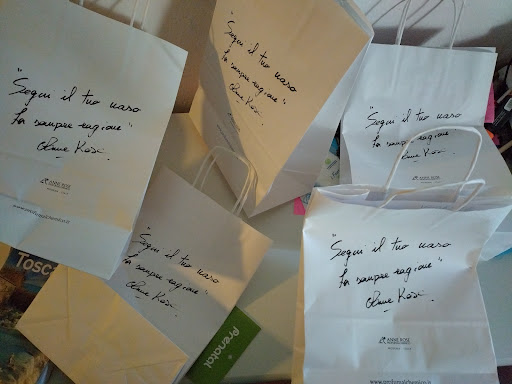 "Segui il tuo naso
ha sempre ragione"
Anne Rose.
ANNE ROSE
"Segui il tuo naso
ha sempre ragione"
Anne Rose.
"Segui il tuo naso
ha sempre ragione"
Anne Rose.
ANNE ROSE
"Segui il tuo naso
ha sempre ragione"
Anne Rose.
"Segui il tuo naso
ha sempre ragione"
Anne Rose.
ANNE ROSE
Tosc
Prenatal